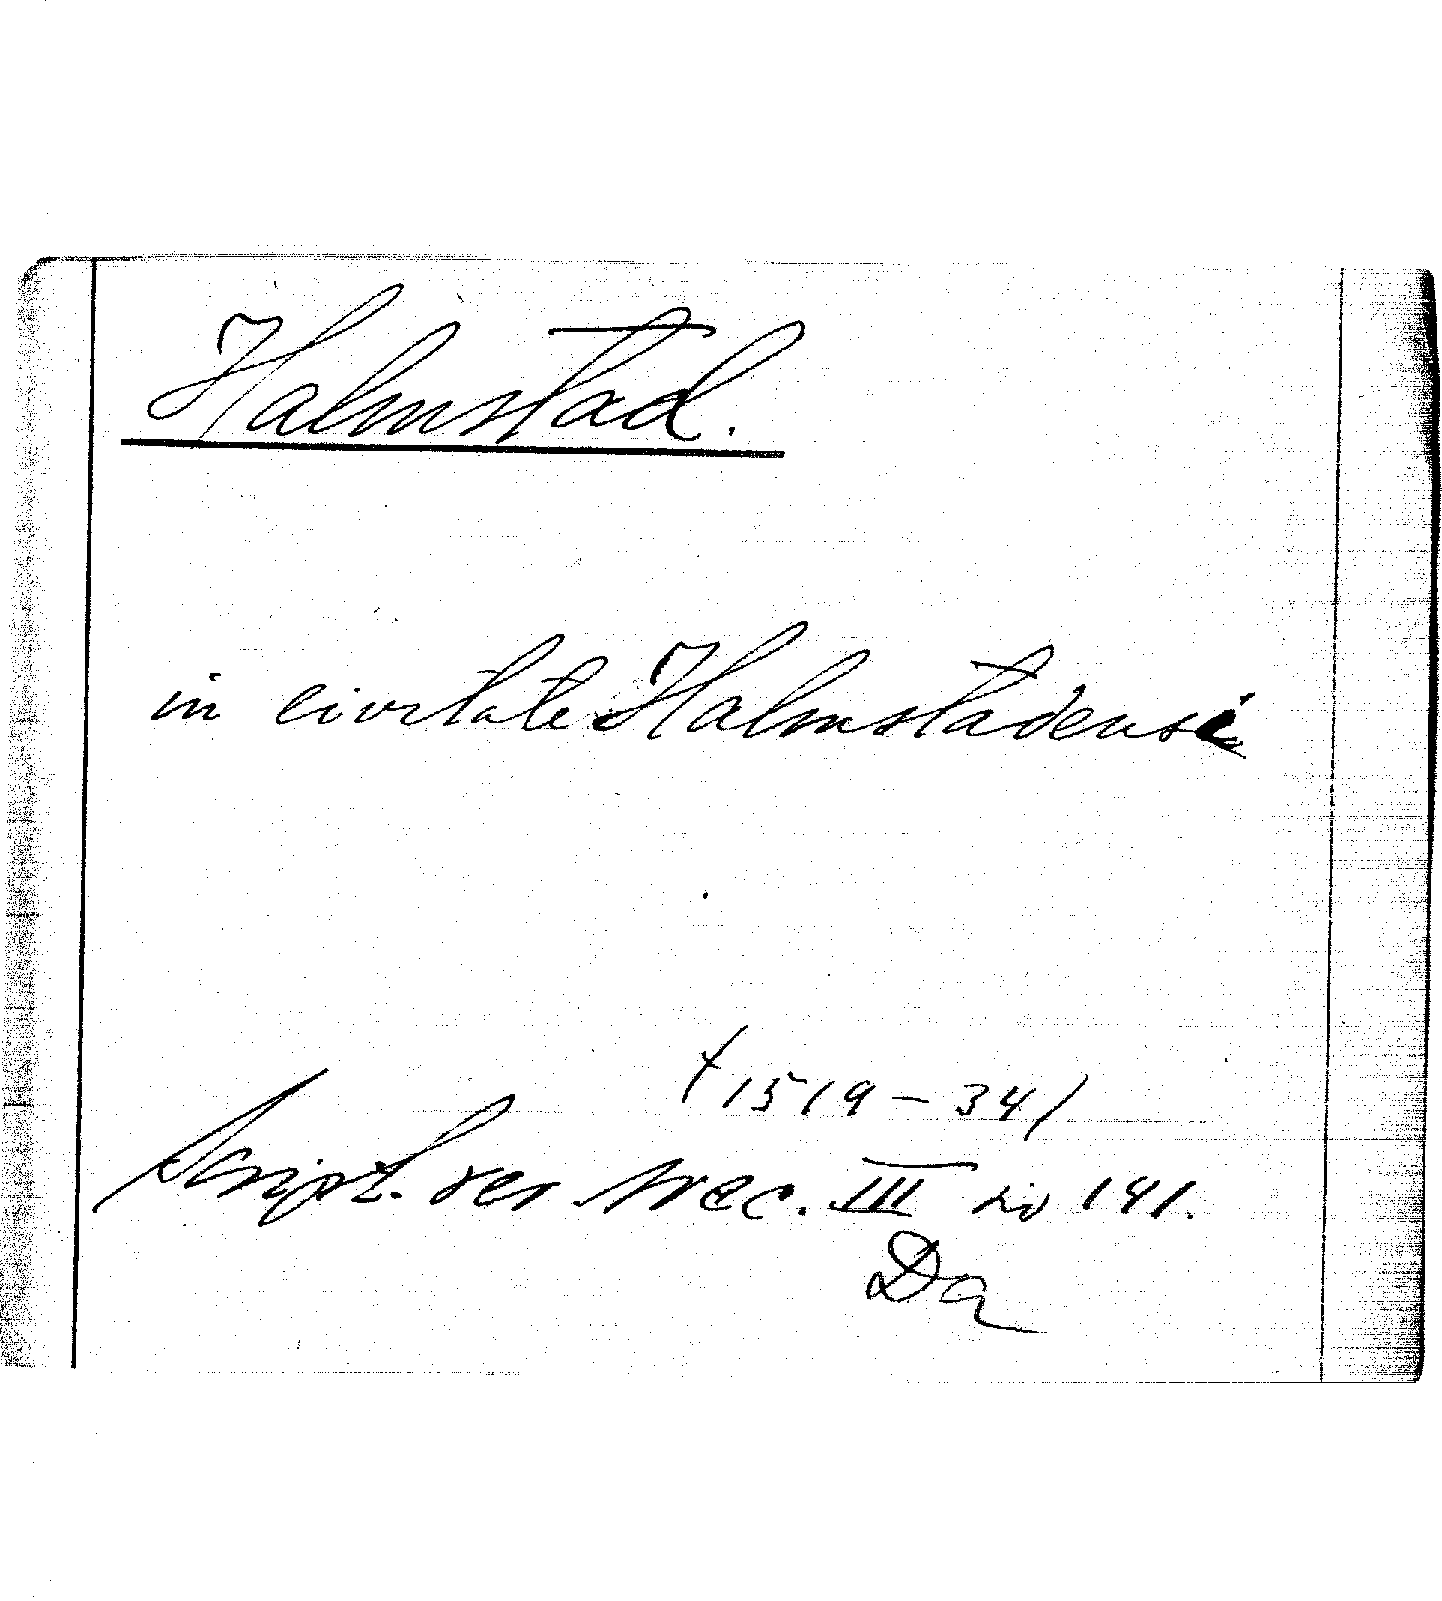 Halmstad.
in civitate Halmstadensi
(1519-34)
Script. rer svec. III sid 141.
Da